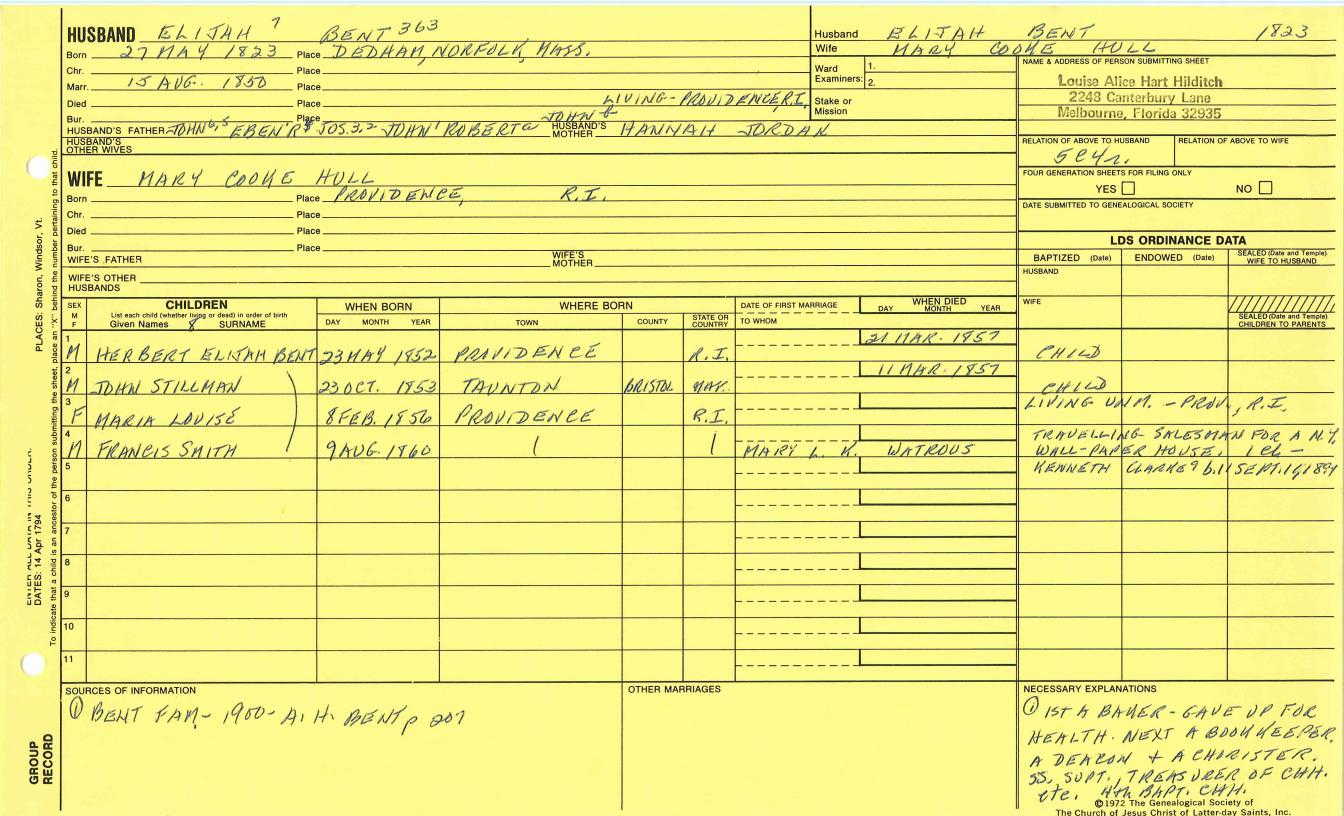 HUSBAND ELIJAH 7 BENT 363
Born 27 MAY 1823 Place DEDHAM, NORFOLK, MASS.
Chr. Place
Marr. 15 AUG. 1850 Place
Died Place LIVING - PROVIDENCE, R.I.
Bur. Place
HUSBAND'S FATHER JOHN 6,5 EBEN'R JOS. 3,2 JOHN 1 ROBERT a JOHN & HUSBAND'S MOTHER HANNAH JORDAN
HUSBAND'S OTHER WIVES
Husband ELIJAH BENT 1823
Wife MARY COOKE HULL
Ward Examiners: 1.
2.
Stake or Mission
NAME & ADDRESS OF PERSON SUBMITTING SHEET
Louise Alice Hart Hilditch
2248 Canterbury Lane
Melbourne, Florida 32935
RELATION OF ABOVE TO HUSBAND RELATION OF ABOVE TO WIFE
5C4r.
FOUR GENERATION SHEETS FOR FILING ONLY
YES NO
DATE SUBMITTED TO GENEALOGICAL SOCIETY
WIFE MARY COOKE HULL
Born Place PROVIDENCE, R.I.
Chr. Place
Died Place
Bur. Place
WIFE'S FATHER WIFE'S MOTHER
WIFE'S OTHER HUSBANDS
LDS ORDINANCE DATA
BAPTIZED (Date) ENDOWED (Date) SEALED (Date and Temple) WIFE TO HUSBAND
HUSBAND
WIFE
SEALED (Date and Temple) CHILDREN TO PARENTS
SEX M F CHILDREN WHEN BORN WHERE BORN DATE OF FIRST MARRIAGE WHEN DIED
List each child (whether living or dead) in order of birth
Given Names 8 SURNAME DAY MONTH YEAR TOWN COUNTY STATE OR COUNTRY TO WHOM DAY MONTH YEAR
1 M HERBERT ELIJAH BENT 23 MAY 1852 PROVIDENCE R.I. 21 MAR. 1857 CHILD
2 M JOHN STILLMAN 23 OCT. 1853 TAUNTON BRISTOL MAS. 11 MAR. 1857 CHILD
3 F MARIA LOUISE 8 FEB. 1856 PROVIDENCE R.I. LIVING UNM. - PROV., R.I.
4 M FRANCIS SMITH 9 AUG. 1860 MARY L. K. WATROUS TRAVELLING SALESMAN FOR A N.Y.
WALL-PAPER HOUSE. 1 Ch -
5 KENNETH CLARKE 9 b.
6
7
8
9
10
11
SOURCES OF INFORMATION
① BENT FAM - 1900 - A. H. BENT p 207
OTHER MARRIAGES
NECESSARY EXPLANATIONS
① 1ST A BAKER - GAVE UP FOR
HEALTH. NEXT A BOOKKEEPER.
A DEACON + A CHORISTER.
SS. SUPT., TREASURER OF CHH.
etc. 4th BAPT. CHH.
©1972 The Genealogical Society of
The Church of Jesus Christ of Latter-day Saints, Inc.
PLACES: Sharon, Windsor, Vt.
ENTER ALL DATA IN THIS ORDER:
DATES: 14 Apr 1794
To indicate that a child is an ancestor of the person submitting the sheet, place an "X" behind the number pertaining to that child.
GROUP RECORD